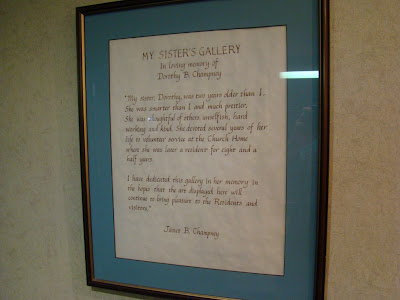 MY SISTER'S GALLERY
In loving memory of
Dorothy B. Champney
"My sister, Dorothy, was two years older than I.
She was smarter than I and much prettier.
She was thoughtful of others, unselfish, hard
working and kind. She devoted several years of her
life to volunteer service at the Church Home
where she was later a resident for eight and a
half years.
I have dedicated this gallery in her memory in
the hopes that the art displayed here will
continue to bring pleasure to the Residents and
visitors."
B. Champney